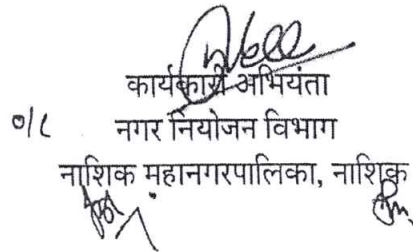 कार्यकारी अभियंता
o/c नगर नियोजन विभाग
नाशिक महानगरपालिका, नाशिक